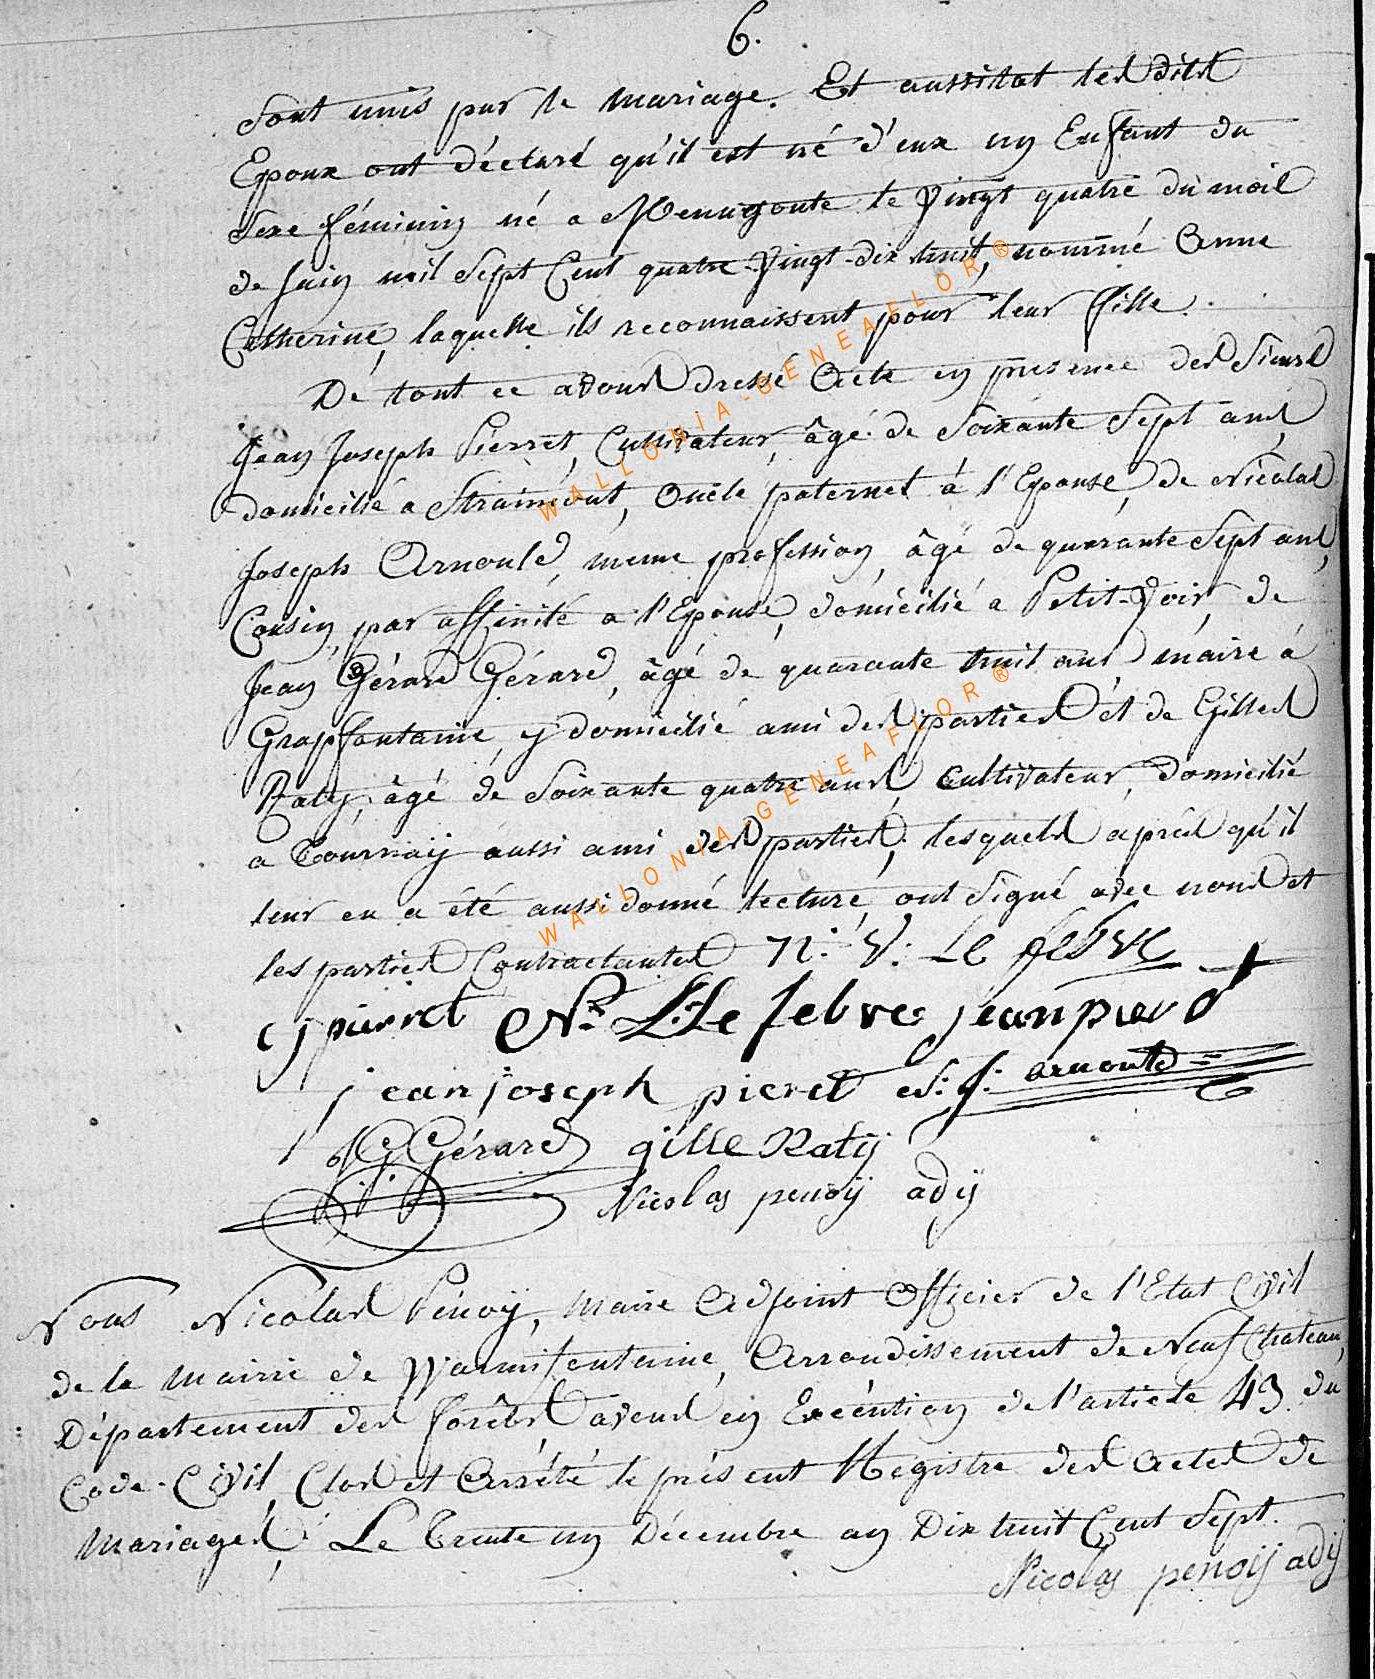 6.
Sont unis par le mariage. Et aussitot lesdits
Epoux ont déclaré qu'il est né d'eux un Enfant du
sexe féminin né a Menugoute le vingt quatre du mois
de Juin mil Sept Cent quatre-vingt-dix huit, nommé Anne
Catherine, laquelle ils reconnaissent pour leur fille.
De tout ce avons dressé Acte en presence des Sieurs
Jean Joseph Pierret, Cultivateur, âgé de Soixante Sept ans,
domicilié a Straimont, Oncle paternel à l'Epouse, de Nicolas
Joseph Arnould, meme profession, âgé de quarante Sept ans,
Cousin, par affinité a l'Epouse, domicilié a Petit-Voir, de
Jean Gérard Gérard, âgé de quarante huit ans maire à
Grapfontaine, y domicilié ami des parties et de Gilles
Raty, âgé de Soixante quatre ans, Cultivateur, domicilié
a Tournay aussi ami des parties, lesquels après qu'il
leur en a été aussi donné lecture, ont Signé avec nous et
les parties Contractantes N: V: Le febve
j pierret N. L: Le febvre jean pierd
jean joseph pieret N: J: arnould
J G Gérard gille Raty
Nicolas penoij adij
Nous Nicolas Penoÿ, Maire Adjoint Officier de l'Etat Civil
de la Mairie de Warmifontaine, Arrondissement de Neufchateau,
Département des forêts, avons en Exécution de l'article 43 du
Code-Civil, Clos et Arrêté le présent Registre des Actes de
Mariages, Le Trente un Décembre an Dix huit Cent Sept.
Nicolas penoij adij
WALLONIA-GENEAFLOR®
WALLONIA-GENEAFLOR®